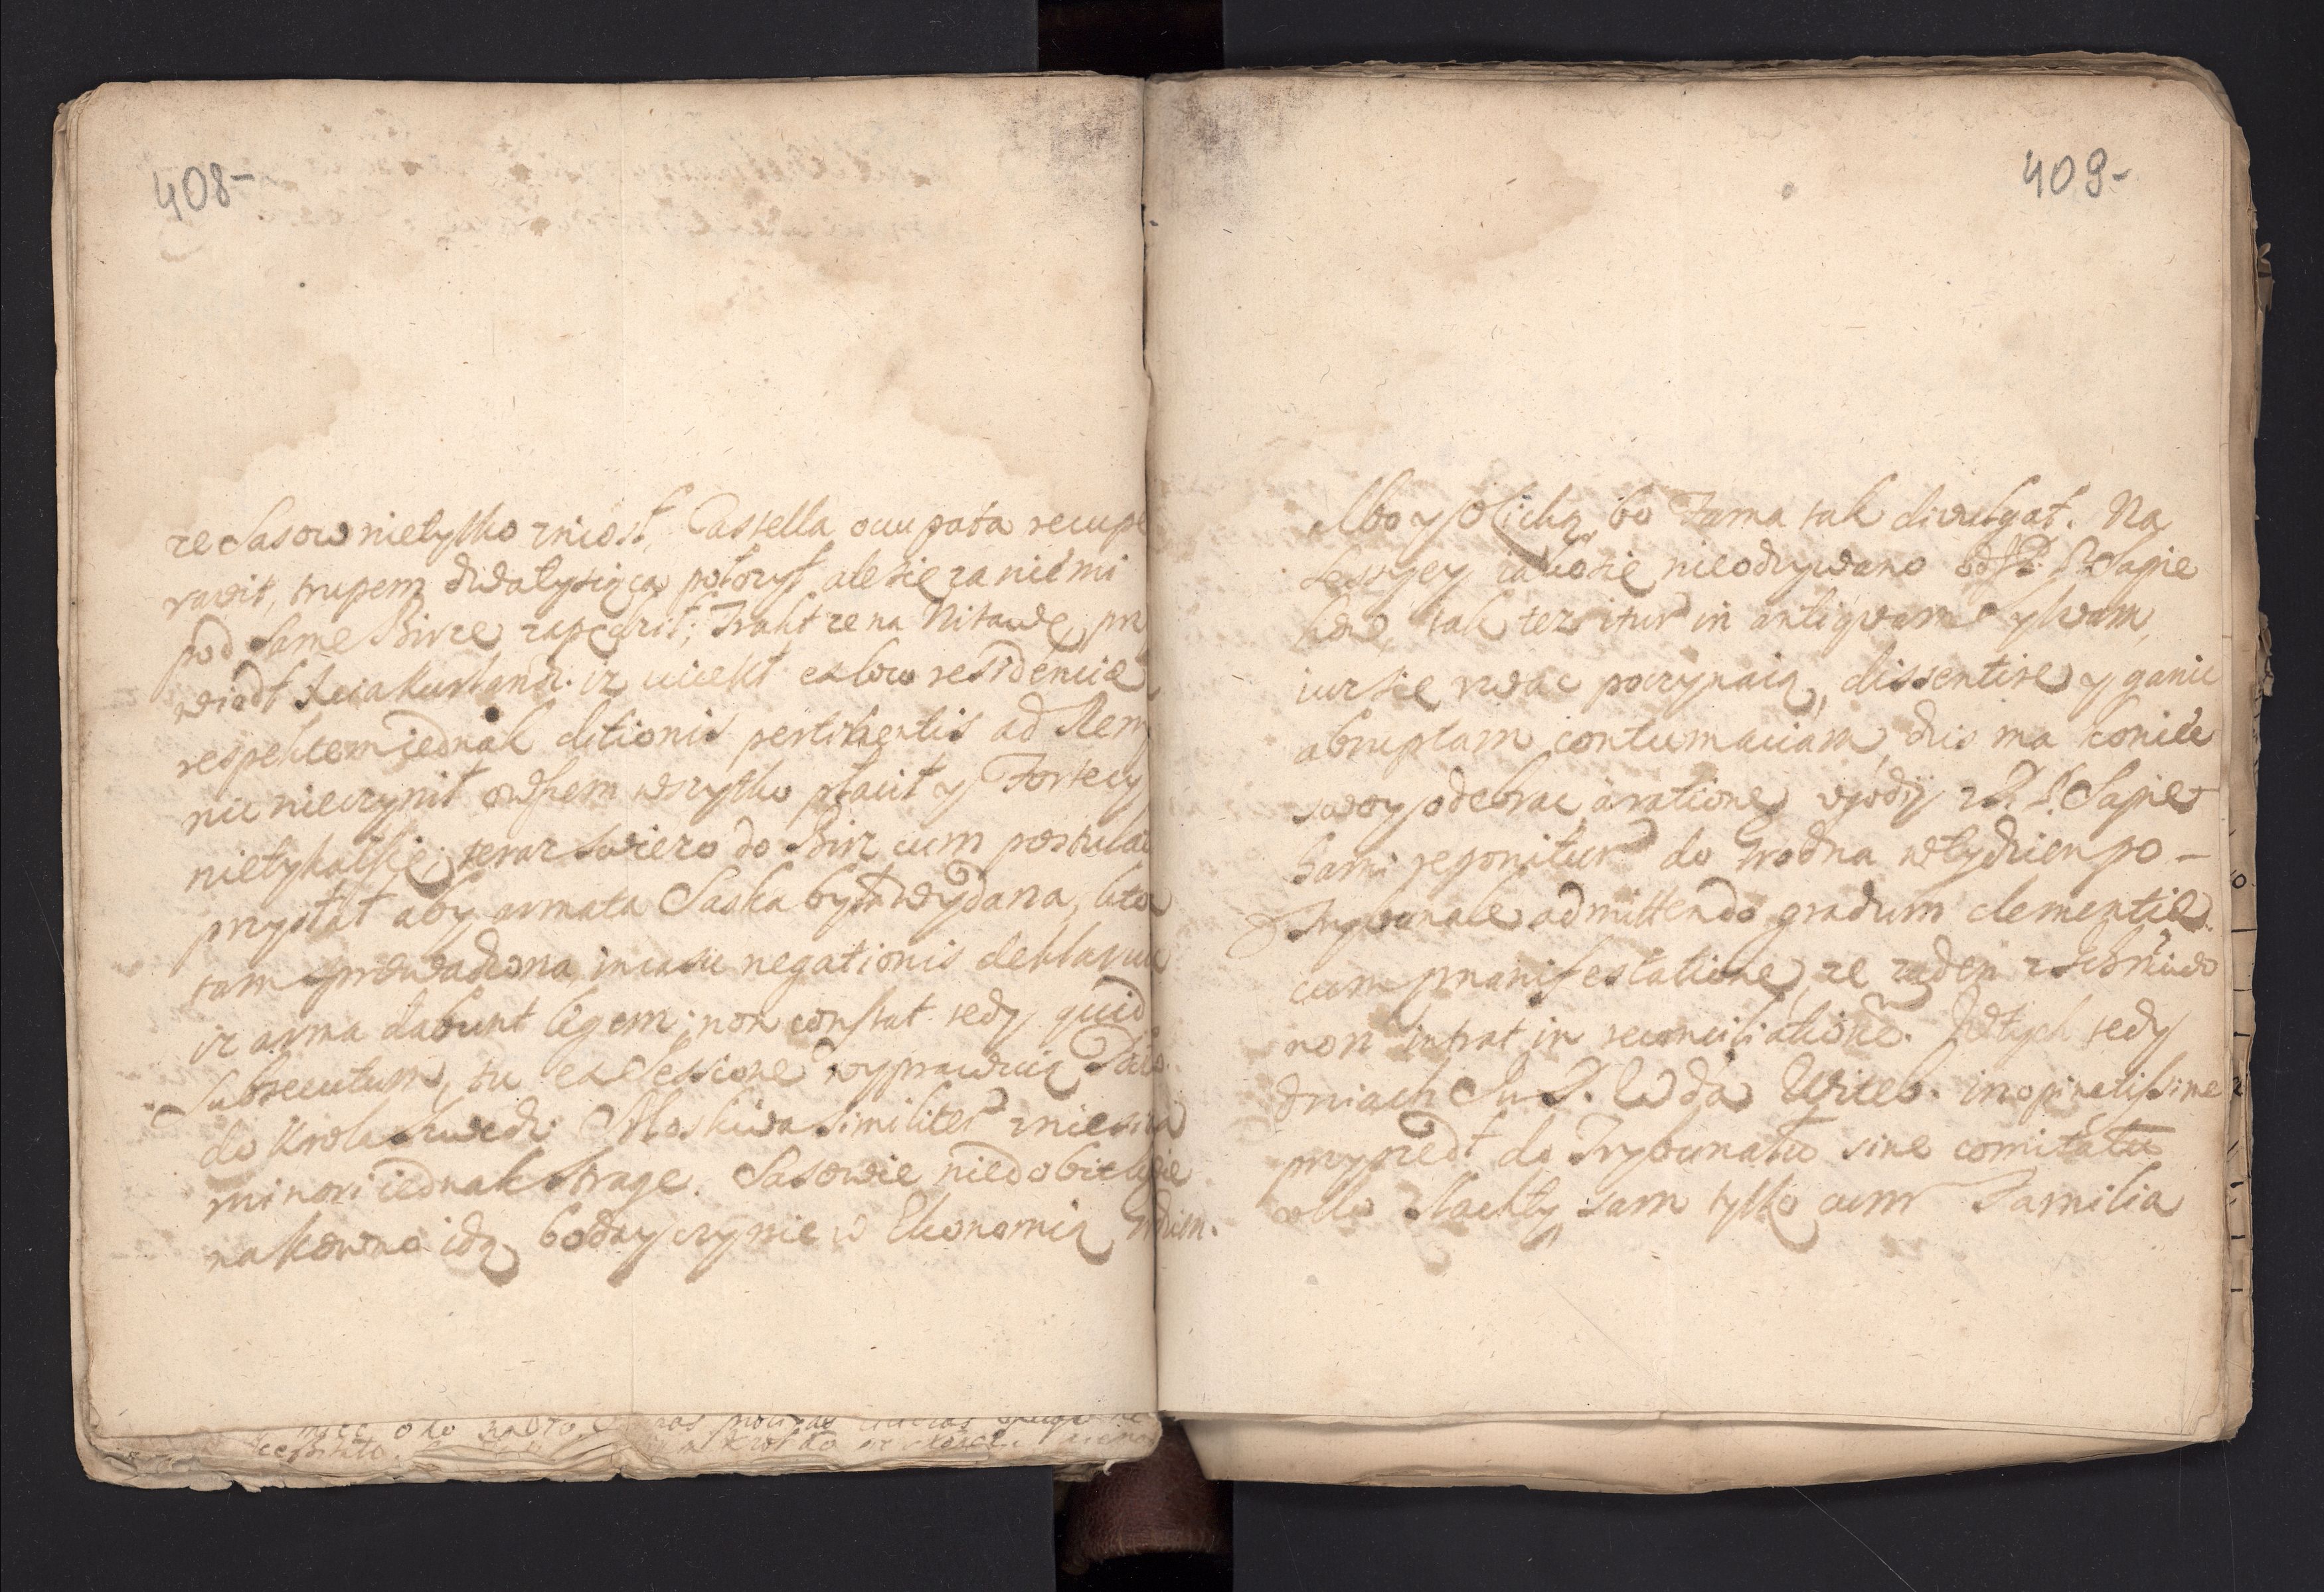 408-
ze Sasow nietylko zniosł, Castella occupata recupe
ravit, trupem dwa tysiąca połozył ale się za niemi
pod same Birze zapędził; Trakt ze na Mitawę, prze
wiodł Xcia Kurland. iz uciekł ex loco residentiæ,
respektem iednak ditionis pertinentis ad Rem
nic nieczynił owszem wszytko płacił y Fortecy
nietykał się; teraz swiezo do Birz cum postulat
przysłał aby armata Saska była wydana, kto
tam sprowadzona, in casu negationis deklaruie
iz arma dabunt legem; non constat tedy quid
subsecutum, tu ex Sessione wyprawuią
do Krola Szwedz. Moskwa similiter zniesiona
minori iednak strage. Sasowie niedobitki
na Kowno idą boday czy nie w Ekonomią Grodzien.
409-
Albo y Olicką, bo Fama tak divulgat. Na
Sessyey iako się nieodzywano od P. P. Sapie
how, tak też itur in antiquam Sylvam,
iuz się rwac poczynaią, dissentire y ganic
abruptam contumaciam, dzis ma koniec
swoy odebrac, a ratione ugody z P. P. Sapie
hami reponitur do Grodna w tydzien po-
Trybunale admittendo gradum clementiæ.
cum manifestatione, ze zaden z
non intrat in reconciliatione. W tych tedy
dniach Je P. Wda Witeb. inopinatissime
przyszedł do Trybunału sine comitatu
ullo Slachty sam tylko cum Familia